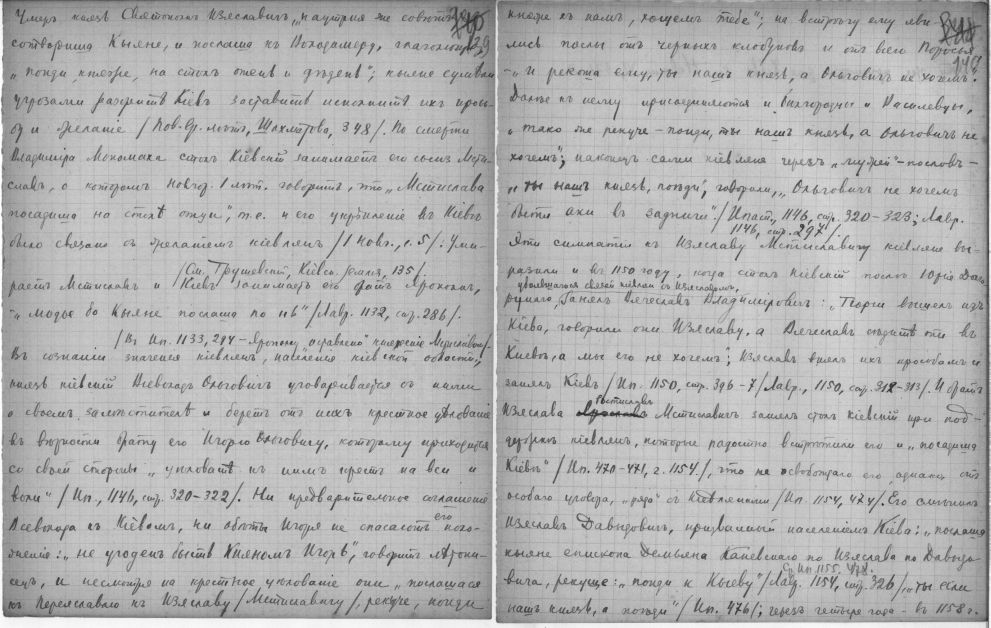 умеръ князь Святополкъ Изяславичъ, "наутрия же совѣтъ
сотвориша Кыяне, и послаша къ Володимеру, глаголюще,
"поиди, княже, на столъ отенъ и дѣденъ"; кыяне сумѣли
угрозами разбить Кіевъ заставить исполнить ихъ прось-
бу и желаніе /Пов. Вр. лѣтъ, Шахматова, 348/. По смерти
Владиміра Мономаха столъ Кіевскій занимаетъ его сынъ Мсти-
славъ, о которомъ новгор. 1 лѣт. говоритъ, что "Мстислава
посадиша на столѣ отци", т.е. и его укрѣпленіе въ Кіевѣ
было связано съ желаніемъ кіевлянъ /1 Новг., с. 5/: Уми-
/См. Грушевскій, Кіевск. земля, 135/.
раетъ Мстиславъ и Кіевъ занимаетъ его братъ Ярополкъ,
"людье бо Кыяне послаша по нь" /Лавр. 1132, стр. 286/.
/Въ Ип. 1133, 294 – Ярополку оставлено княженіе Мстиславомъ/.
Въ сознаніи значенія кіевлянъ, населенія кіевской области,
князь кіевскій Всеволодъ Ольговичъ уговаривается съ ними
о своемъ замѣстителѣ и беретъ отъ нихъ крестное цѣлованіе
въ вѣрности брату его Игорю Ольговичу, которому приходится
со своей стороны "цѣловать къ нимъ крестъ на всеи и
воли" /Ип., 1146, стр. 320-322/. Ни предварительное соглашеніе
Всеволода съ Кіевомъ, ни обѣты Игоря не спасаютъ его поло-
женіе: "не угоденъ бысть Кияномъ Игорь", говоритъ лѣтопи-
сецъ, и несмотря на крестное цѣлованіе они "послашася
къ Переяславлю къ Изяславу /Мстиславичу/, рекуче, поиди
княже къ намъ, хощемъ тебе"; на встрѣчу ему яви-
лись послы отъ черныхъ клобуковъ и отъ всего Поросья
– "и рекоша ему, ты нашъ князь, а Ольговичъ не хочемъ".
Далѣе къ нему присоединяются и Бѣлгородцы и Василевцы,
"тако же рекуче – поиди, ты нашъ князь, а Ольговичъ не
хочемъ"; наконецъ сами кіевляне черезъ "мужей"-пословъ –
"ты нашъ князь, поѣди", говорили, "Ольговичъ не хочемъ
быти аки въ задничи" /Ипат., 1146, стр. 320-323; Лавр.
1146, стр. 297/.
Эти симпатіи къ Изяславу Мстиславичу кіевляне вы-
разили и въ 1150 году, когда столъ Кіевскій послѣ Юрія Дол-
горукаго, занялъ Вячеславъ Владиміровичъ: "Гюрги вышелъ изъ
Кіева, говорили они Изяславу, а Вячеславъ сѣдить ти въ
Киевѣ, а мы его не хочемъ"; Изяславъ внялъ ихъ просьбамъ и
занялъ Кіевъ /Ип. 1150, стр. 396-7/Лавр., 1150, стр. 312-313/. И братъ
Изяслава Ростиславъ Мстиславичъ занялъ столъ кіевскій при под-
держкѣ кіевлянъ, которые радостно встрѣтили его и "посадиша
Кіевѣ" /Ип. 470-471, г. 1154/, что не освобождало его однако отъ
особаго уговора, "ряда" съ Кіевлянами /Ип. 1154, 474/. Его смѣнилъ
Изяславъ Давыдовичъ, призванный населеніемъ Кіева: "послаша
кыяне епископа Демьяна Каневскаго по Изяслава по Давыдо-
Ср. Ип. 1155, 478.
вича, рекуще: "поиди к Кыеву" /Лавр. 1154, стр. 326/, "ты еси
нашъ князь, а поѣди" /Ип. 476/; черезъ четыре года – въ 1158 г.